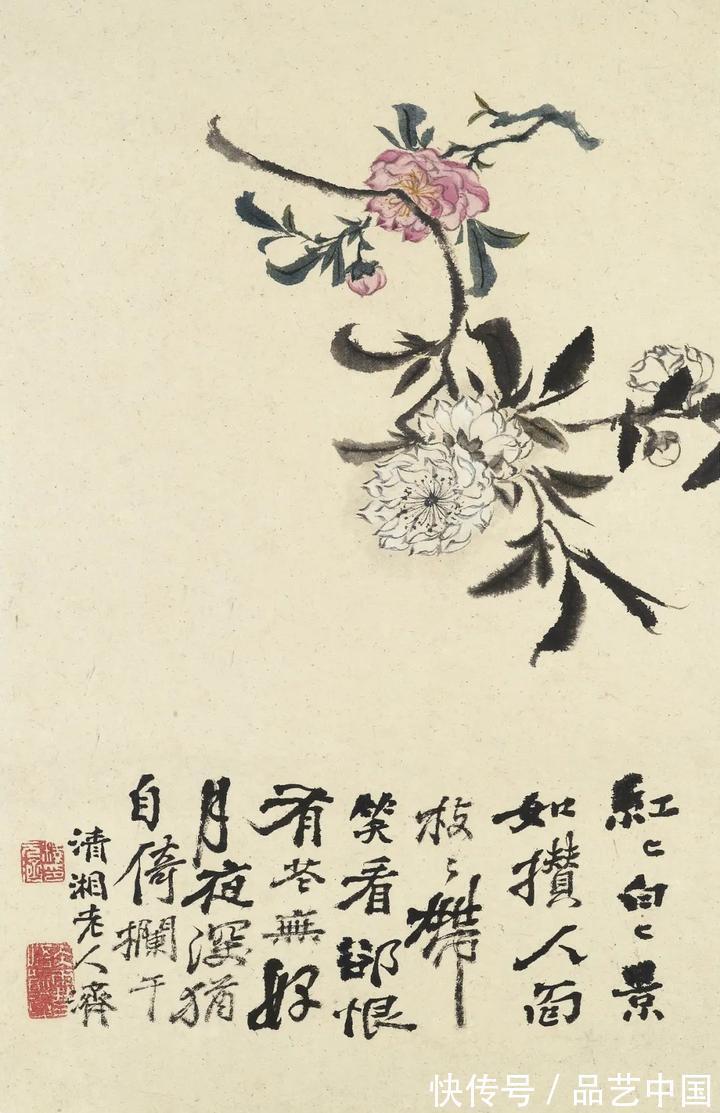 紅〻白〻景
如攢人面
枝〻帶
笑看卻恨
有花無好
月夜深猶
自倚欄干
清湘老人濟
快传号 / 品艺中国